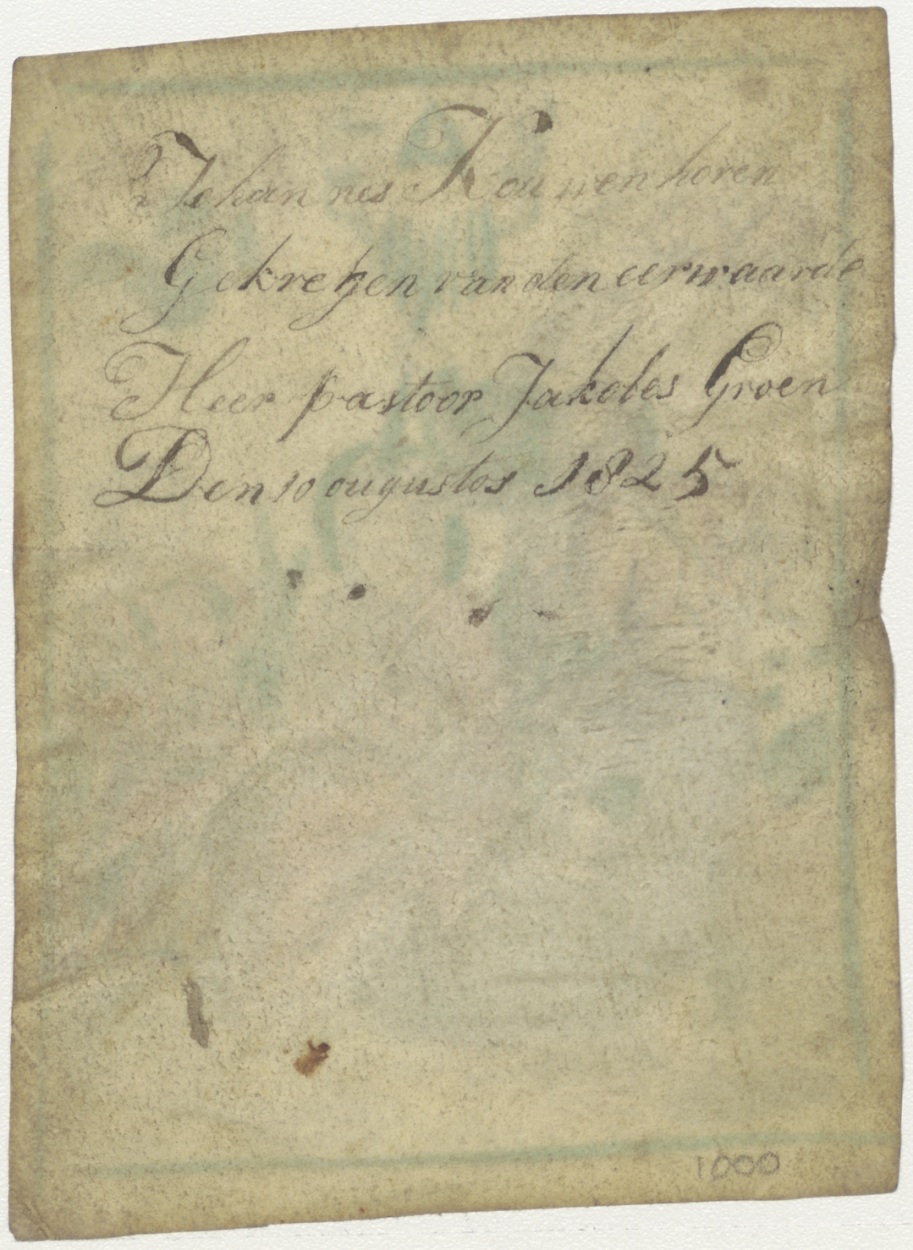 Johannes Kouwenhoven
Gekregen van den eerwaarde
Heer pastoor Jakobes Groen
Den 10 ougustos 1825
1000